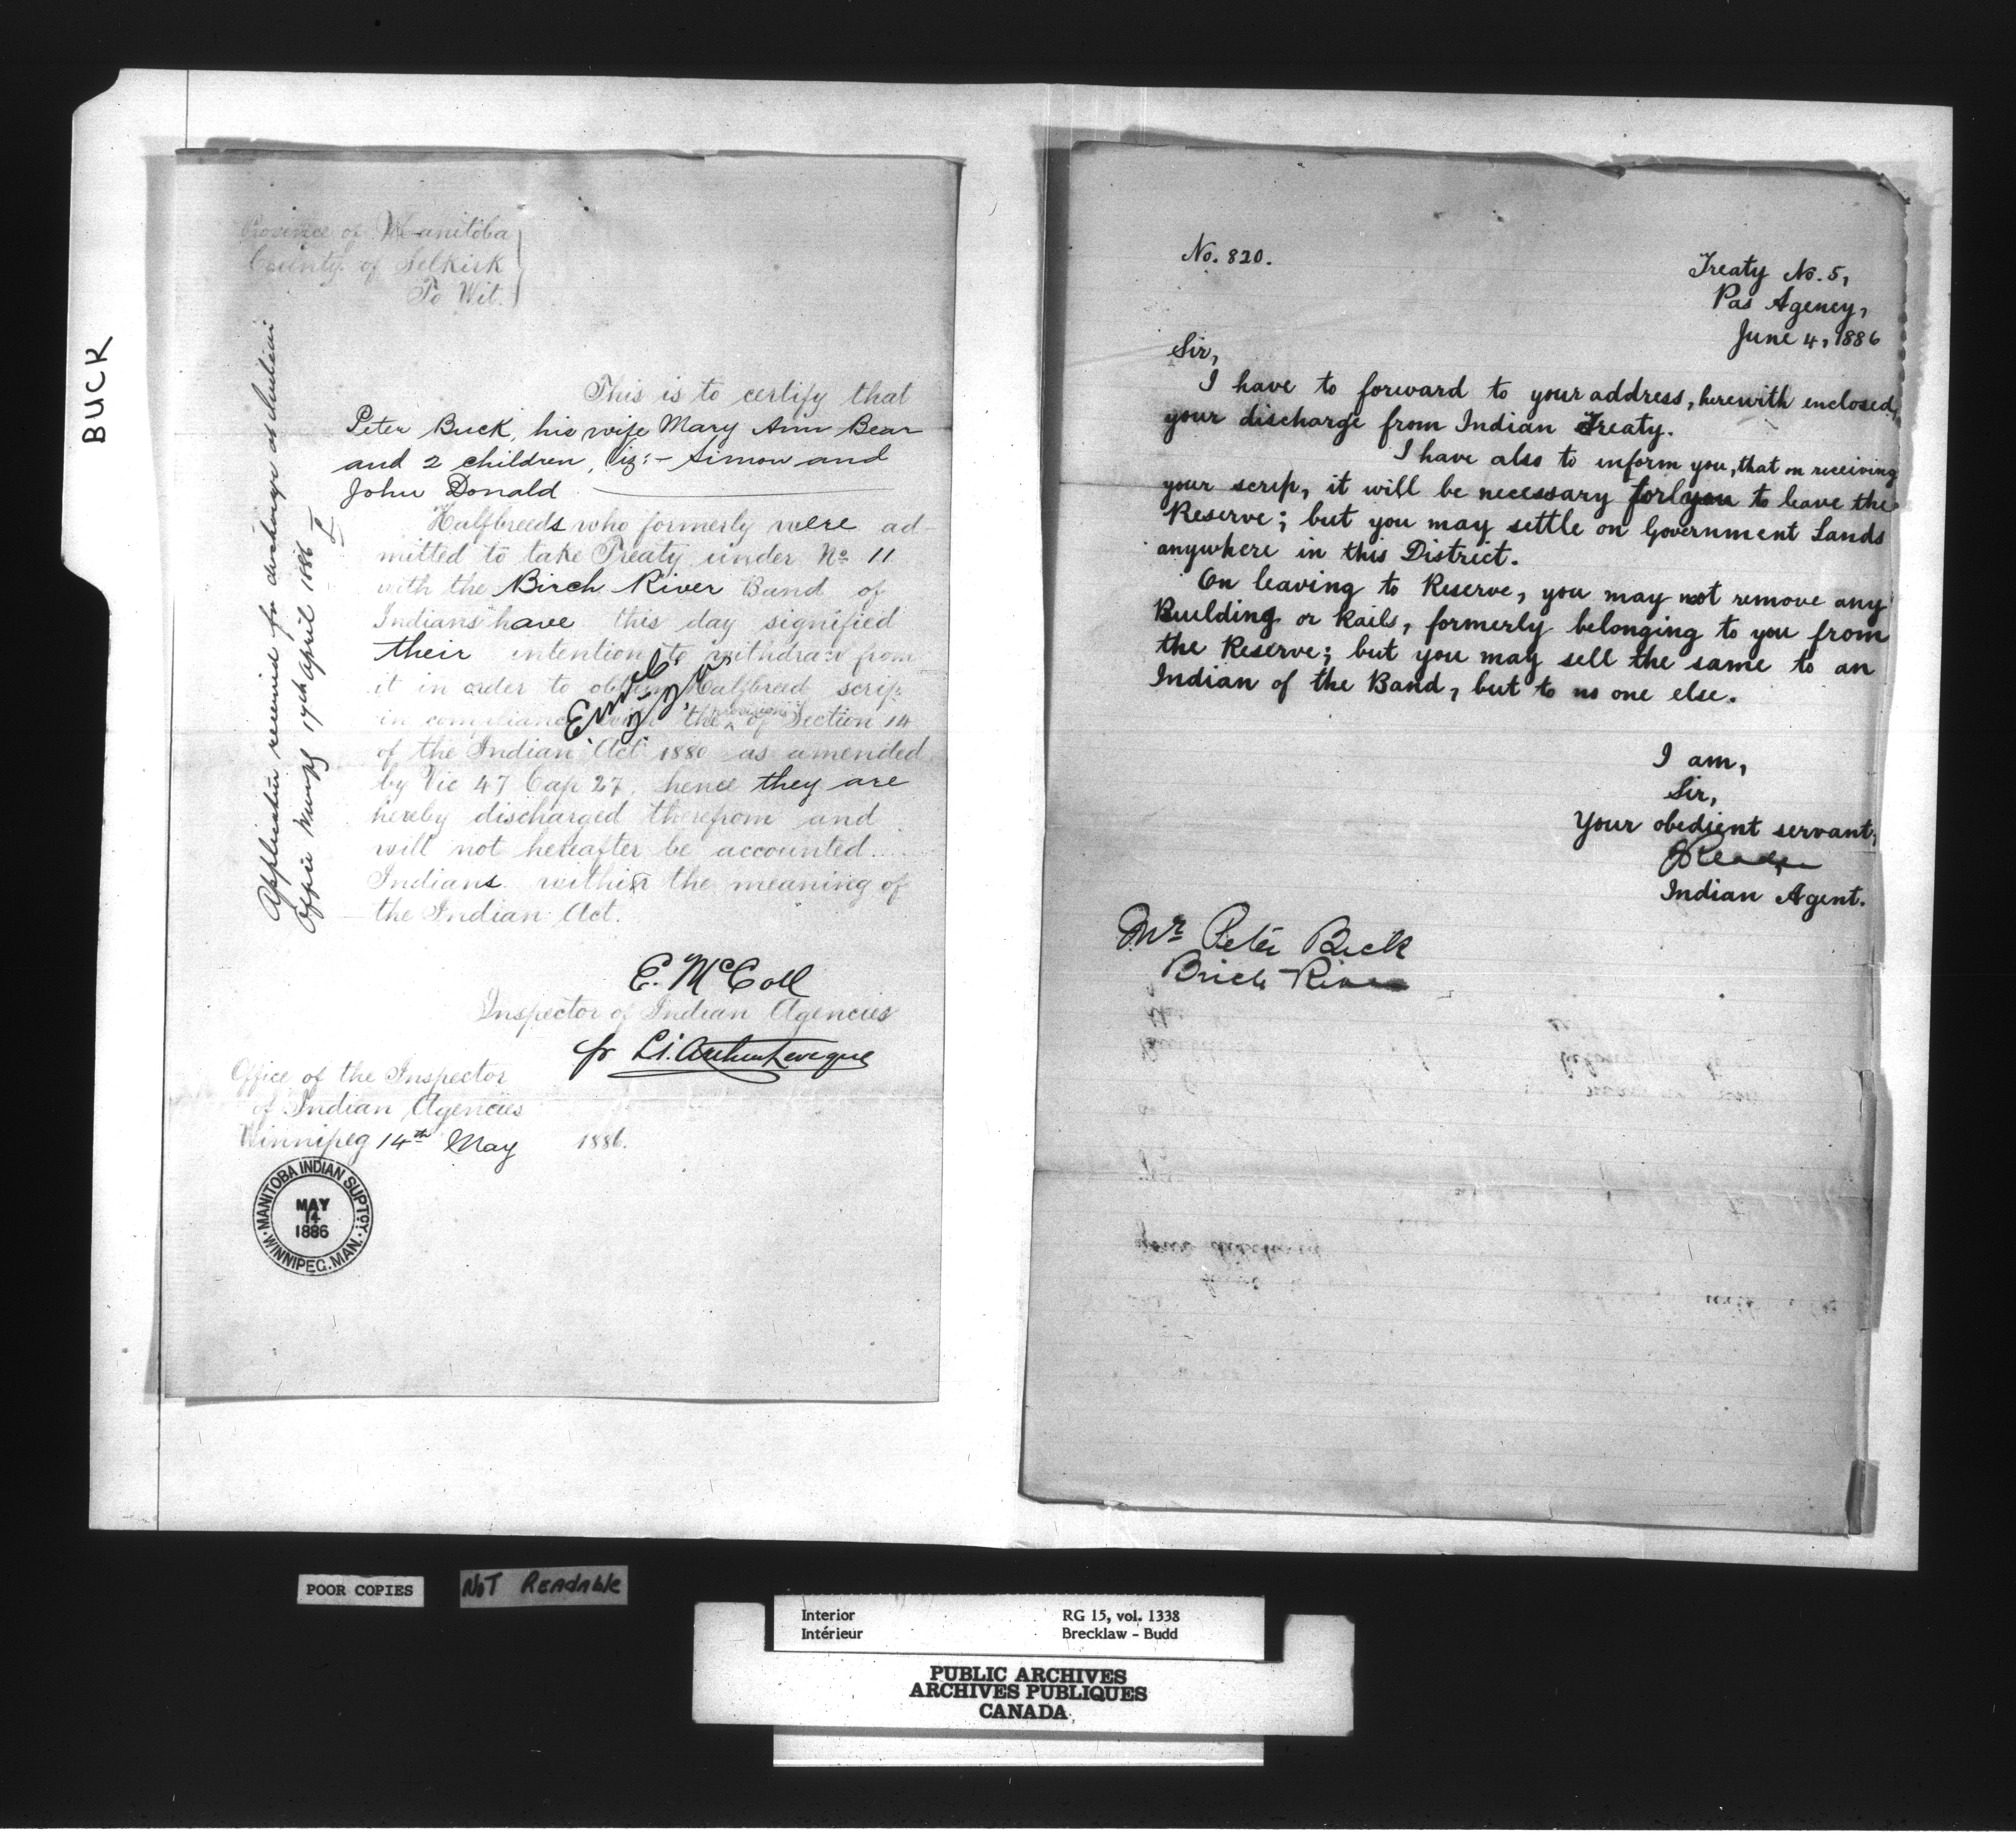 BUCK
Province of Manitoba
County of Selkirk
To Wit.
Application received for discharge at
Office 17th April 1886
This is to certify that
Peter Buck, his wife Mary Ann Bear
and 2 children, viz:- Simon and
John Donald
Halfbreeds who formerly were ad-
mitted to take Treaty under No 11
with the Birch River Band of
Indians have this day signified
their intention to withdraw from
it in order to obtain Halfbreed scrip
in compliance with the provisions of Section 14
of the Indian Act 1880 as amended
by Vic 47 Cap 27. hence they are
hereby discharged therefrom and
will not hereafter be accounted
Indians within the meaning of
the Indian Act.
E. McColl
Inspector of Indian Agencies
fr
Office of the Inspector
of Indian Agencies
Winnipeg 14th May 1886.
MANITOBA INDIAN SUPTCY.
MAY
14
1886
WINNIPEG. MAN.
No. 820.
Treaty No. 5,
Pas Agency,
June 4, 1886
Sir,
I have to forward to your address, herewith enclosed,
your discharge from Indian Treaty.
I have also to inform you, that on receiving
your scrip, it will be necessary for you to leave the
Reserve; but you may settle on Government Lands
anywhere in this District.
On leaving to Reserve, you may not remove any
Building or Rails, formerly belonging to you from
the Reserve; but you may sell the same to an
Indian of the Band, but to no one else.
I am,
Sir,
Your obedient servant,
Reader
Indian Agent.
Mr Peter Buck
Birch River
POOR COPIES
NOT READABLE
Interior RG 15, vol. 1338
Intérieur Brecklaw - Budd
PUBLIC ARCHIVES
ARCHIVES PUBLIQUES
CANADA